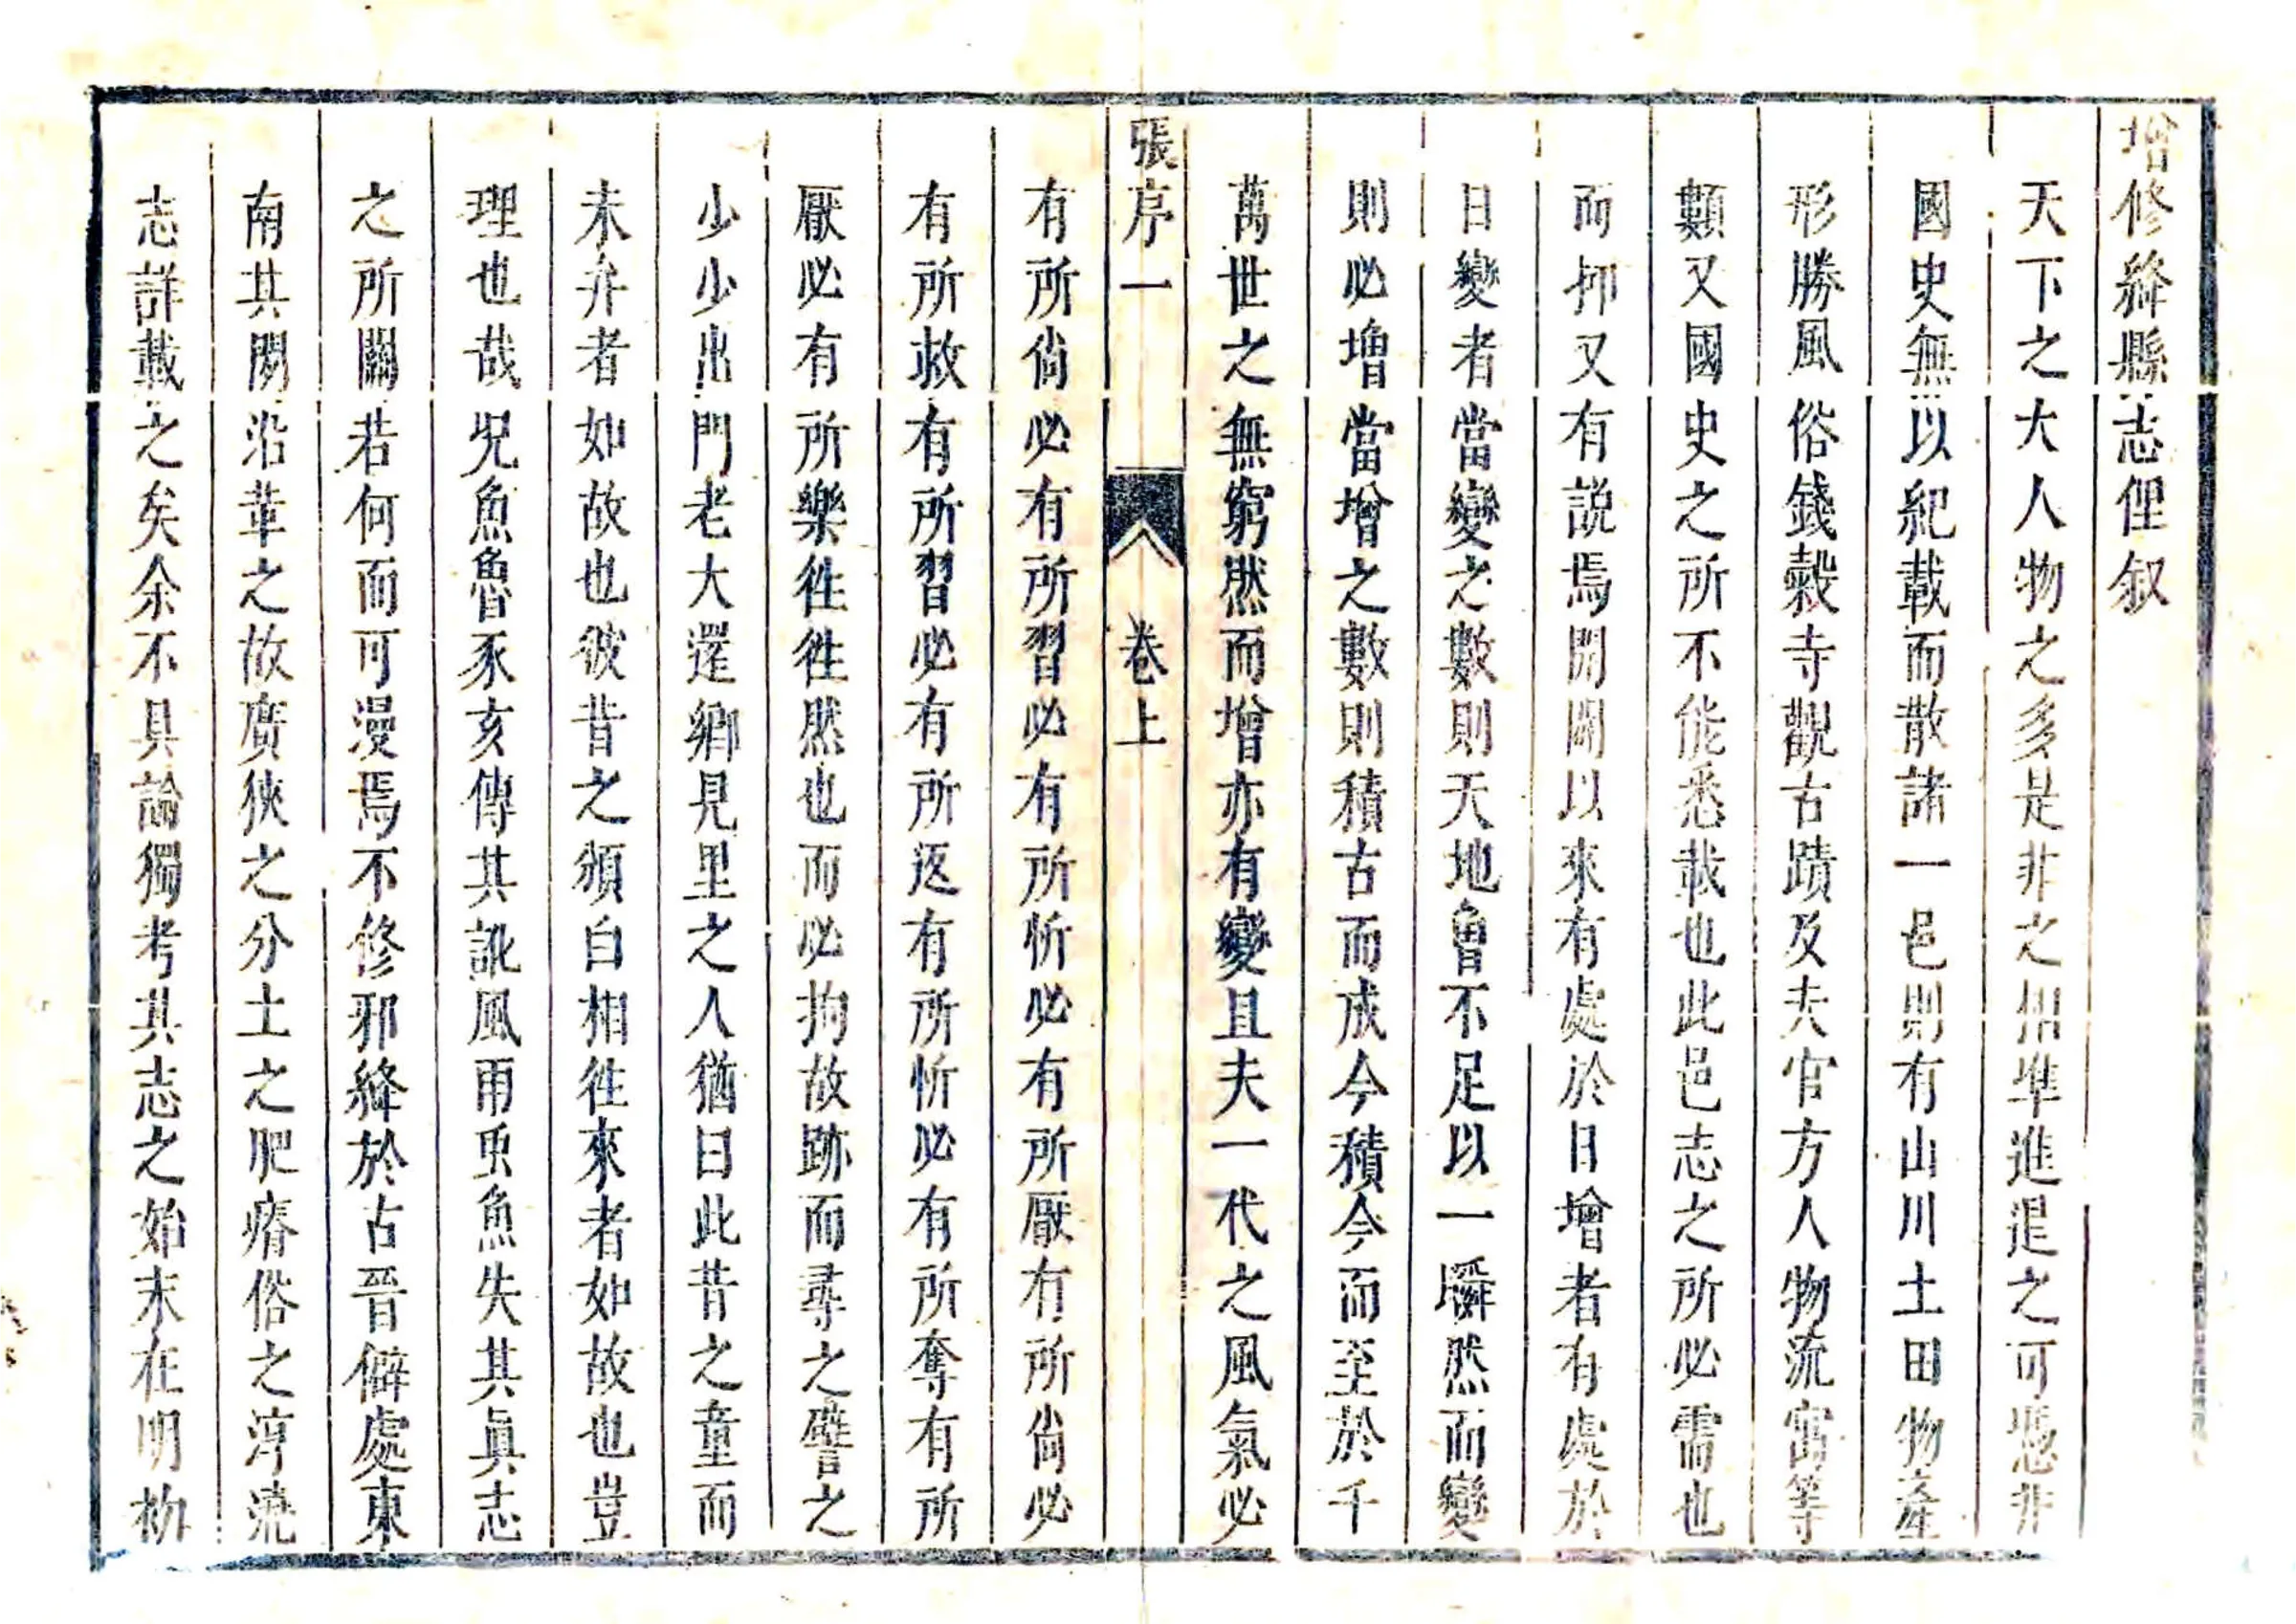 增修絳縣志俚叙
天下之大人物之多是非之相準進退之可憑非
國史無以紀載而散諸一邑則有山川土田物產
形勝風俗錢穀寺觀古蹟及夫官方人物流寓等
類又國史之所不能悉載也此邑志之所必需也
而抑又有説焉開闢以來有處於日增者有處於
日變者當變之數則天地曾不足以一瞬然而變
則必增當增之數則積古而成今積今而至於千
萬世之無窮然而增亦有變且夫一代之風氣必
張序一 卷上
有所尙必有所習必有所忻必有所厭有所尙必
有所救有所習必有所返有所忻必有所奪有所
厭必有所樂徃徃然也而必拘故跡而尋之譬之
少少出門老大還鄉見里之人猶曰此昔之童而
未弁者如故也彼昔之頒白相徃來者如故也豈
理也哉况魚魯豕亥傳其訛風雨虫魚失其眞志
之所關若何而可漫焉不修邪絳於古晉僻處東
南其間沿革之故廣狹之分土之肥瘠俗之淳澆
志詳載之矣余不具論獨考其志之始末在明初